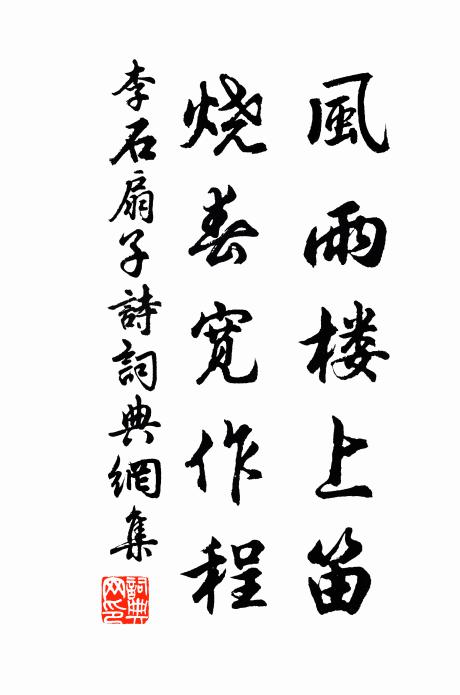 風雨楼上笛
烧春寬作程
李石扇子詩詞典網集
詞典网印